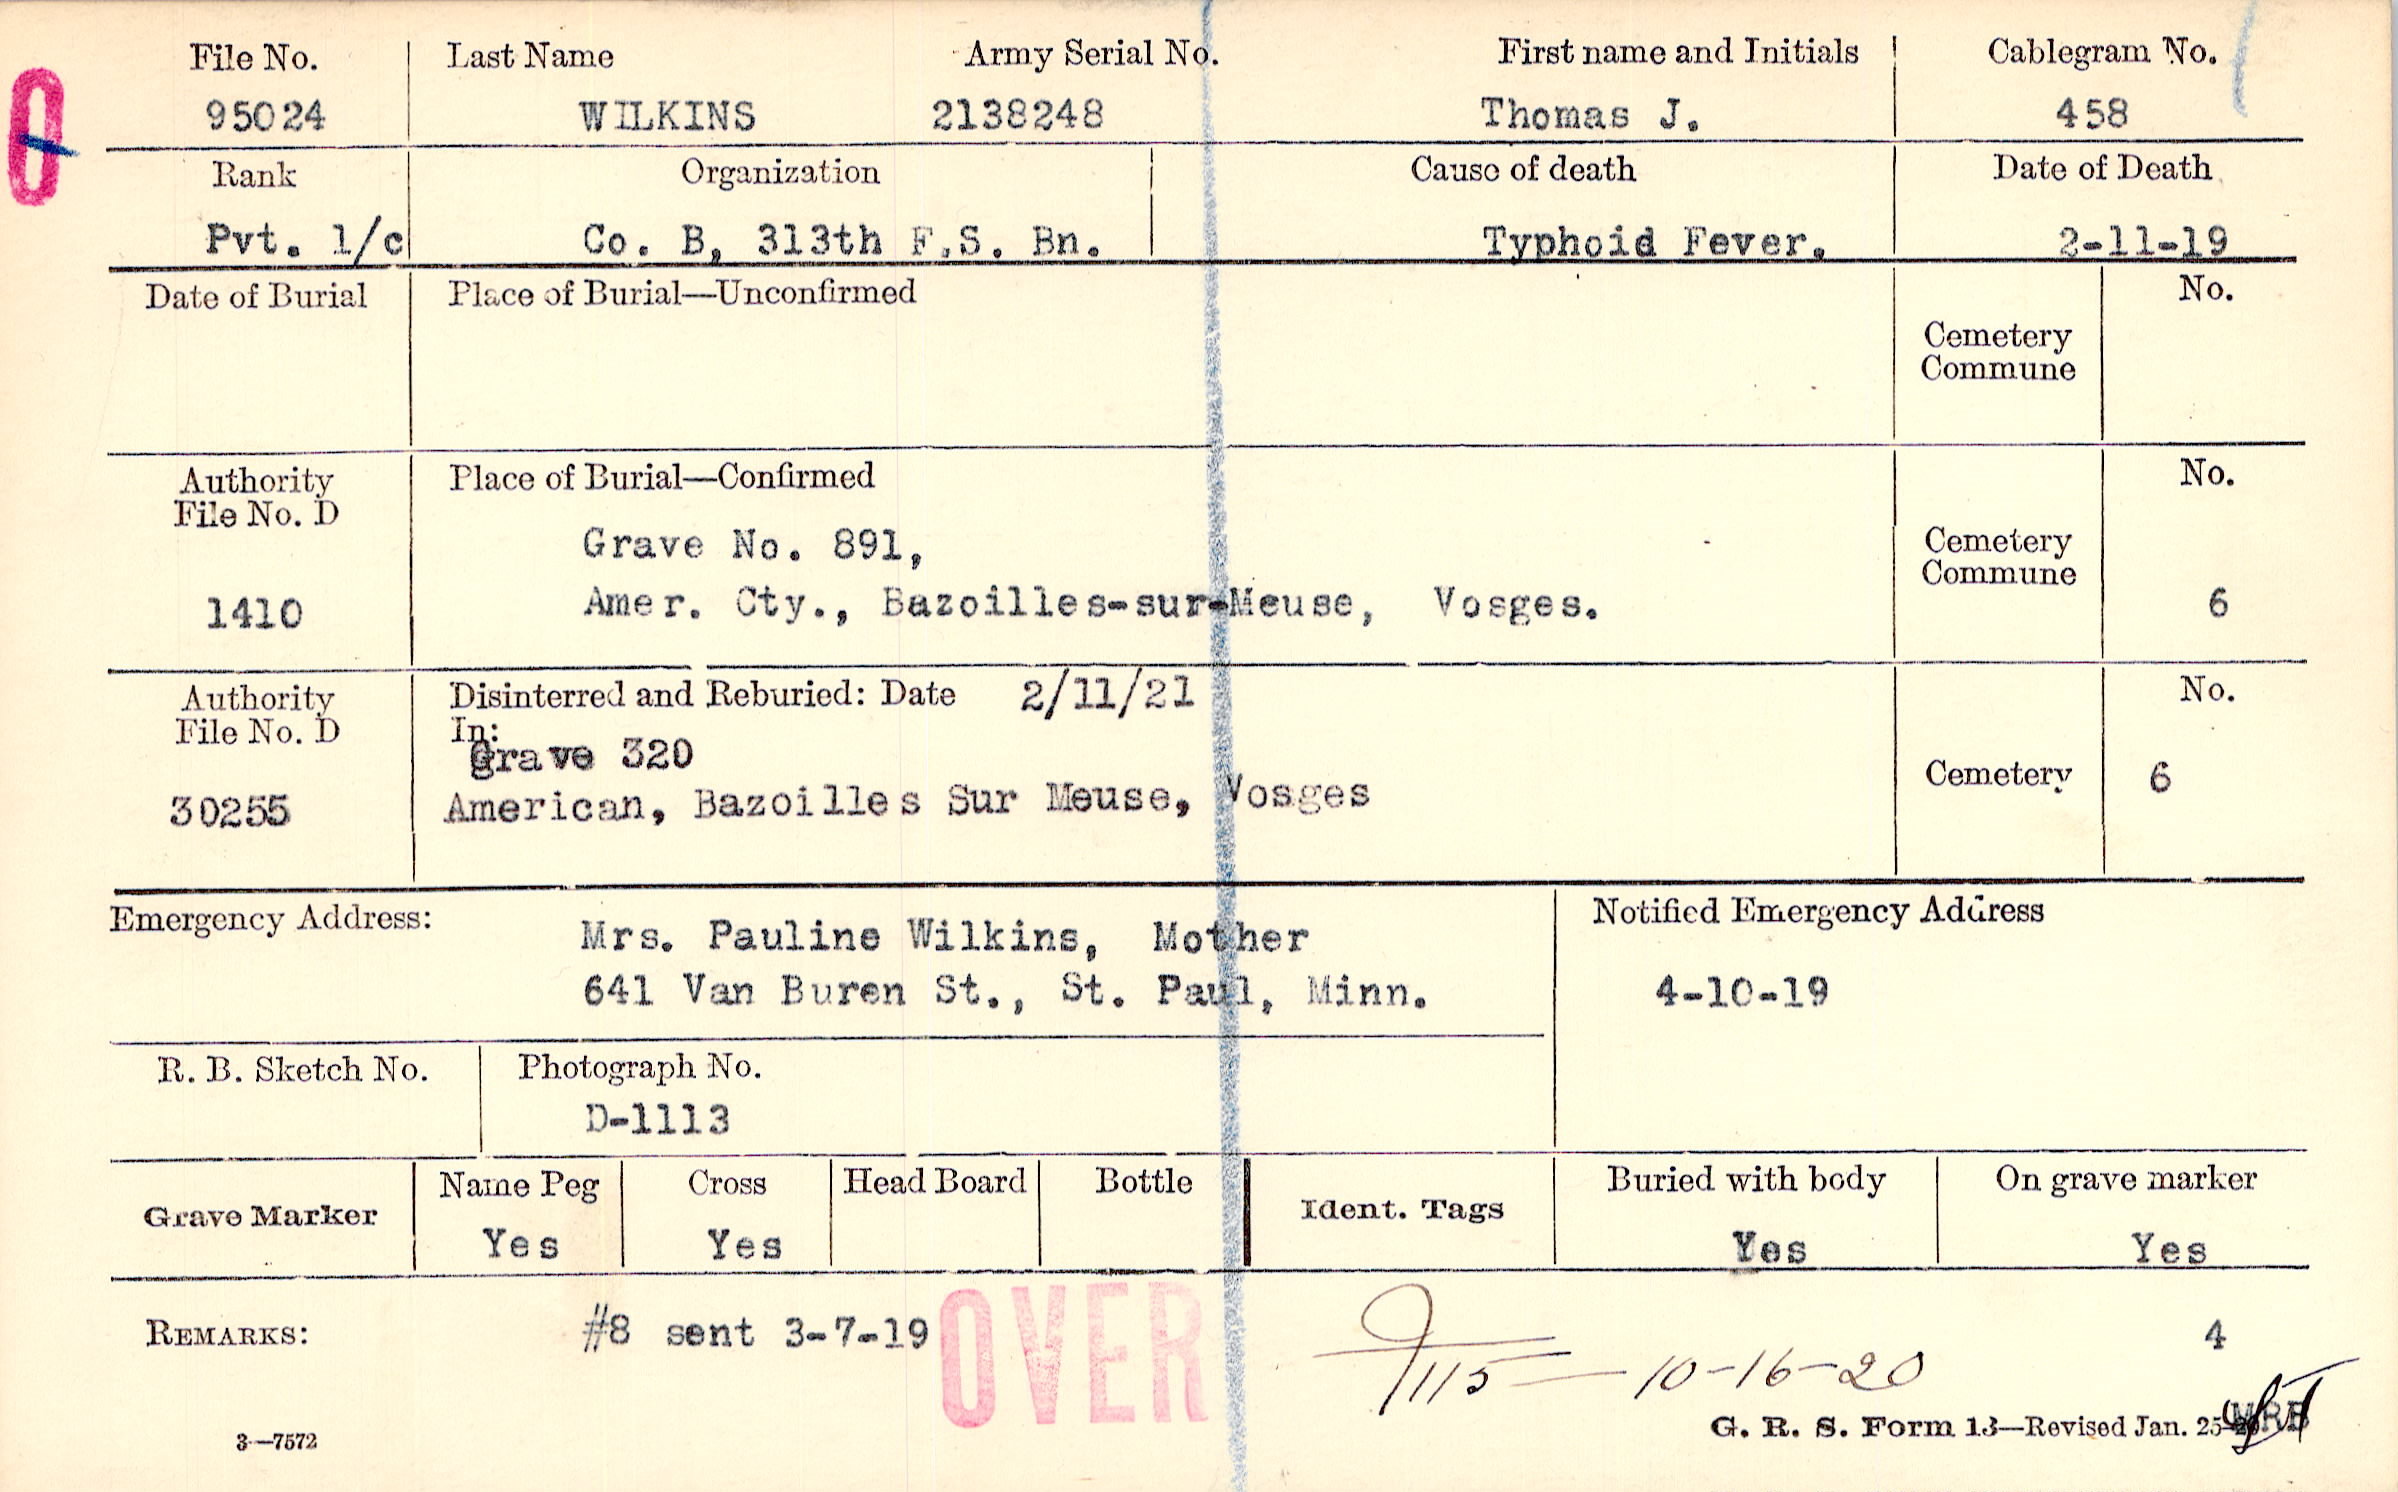 File No. Last Name Army Serial No. First name and Initials Cablegram No.
95024 WILKINS 2138248 Thomas J. 458
Rank Organization Cause of death Date of Death
Pvt. 1/c Co. B, 313th F.S. Bn. Typhoid Fever. 2-11-19
Date of Burial Place of Burial—Unconfirmed No.
Cemetery
Commune
Authority Place of Burial—Confirmed No.
File No. D
Grave No. 891,
Cemetery
Commune
1410 Amer. Cty., Bazoilles-sur-Meuse, Vosges. 6
Authority Disinterred and Reburied: Date 2/11/21 No.
File No. D In:
Grave 320
Cemetery 6
30255 American, Bazoilles Sur Meuse, Vosges
Emergency Address: Notified Emergency Address
Mrs. Pauline Wilkins, Mother
641 Van Buren St., St. Paul, Minn. 4-10-19
R. B. Sketch No. Photograph No.
D-1113
Grave Marker Name Peg Cross Head Board Bottle Ident. Tags Buried with body On grave marker
Yes Yes Yes Yes
REMARKS: #8 sent 3-7-19 OVER 4
115 — 10-16-20
3—7572 G. R. S. Form 13—Revised Jan. 25- MRB